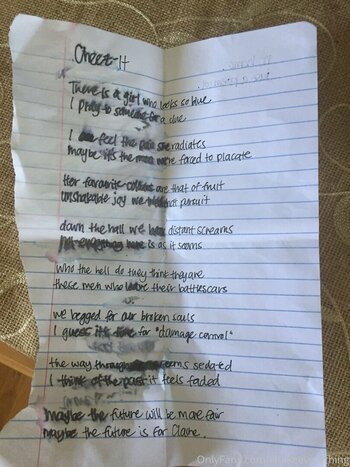 Cheez-It
There is a girl who looks so blue
I pray to someone for a clue
I feel the pain she radiates
maybe it's the were forced to placate
Her favourite colours are that of fruit
unshakable joy we that pursuit
down the hall we hear distant screams
not everything here is as it seems
who the hell do they think they are
these men who leave their battlescars
we begged for our broken souls
I guess it's time for "damage control"
the way through seems sedated
I think of the past it feels faded
maybe the future will be more fair
maybe the future is for Claire.